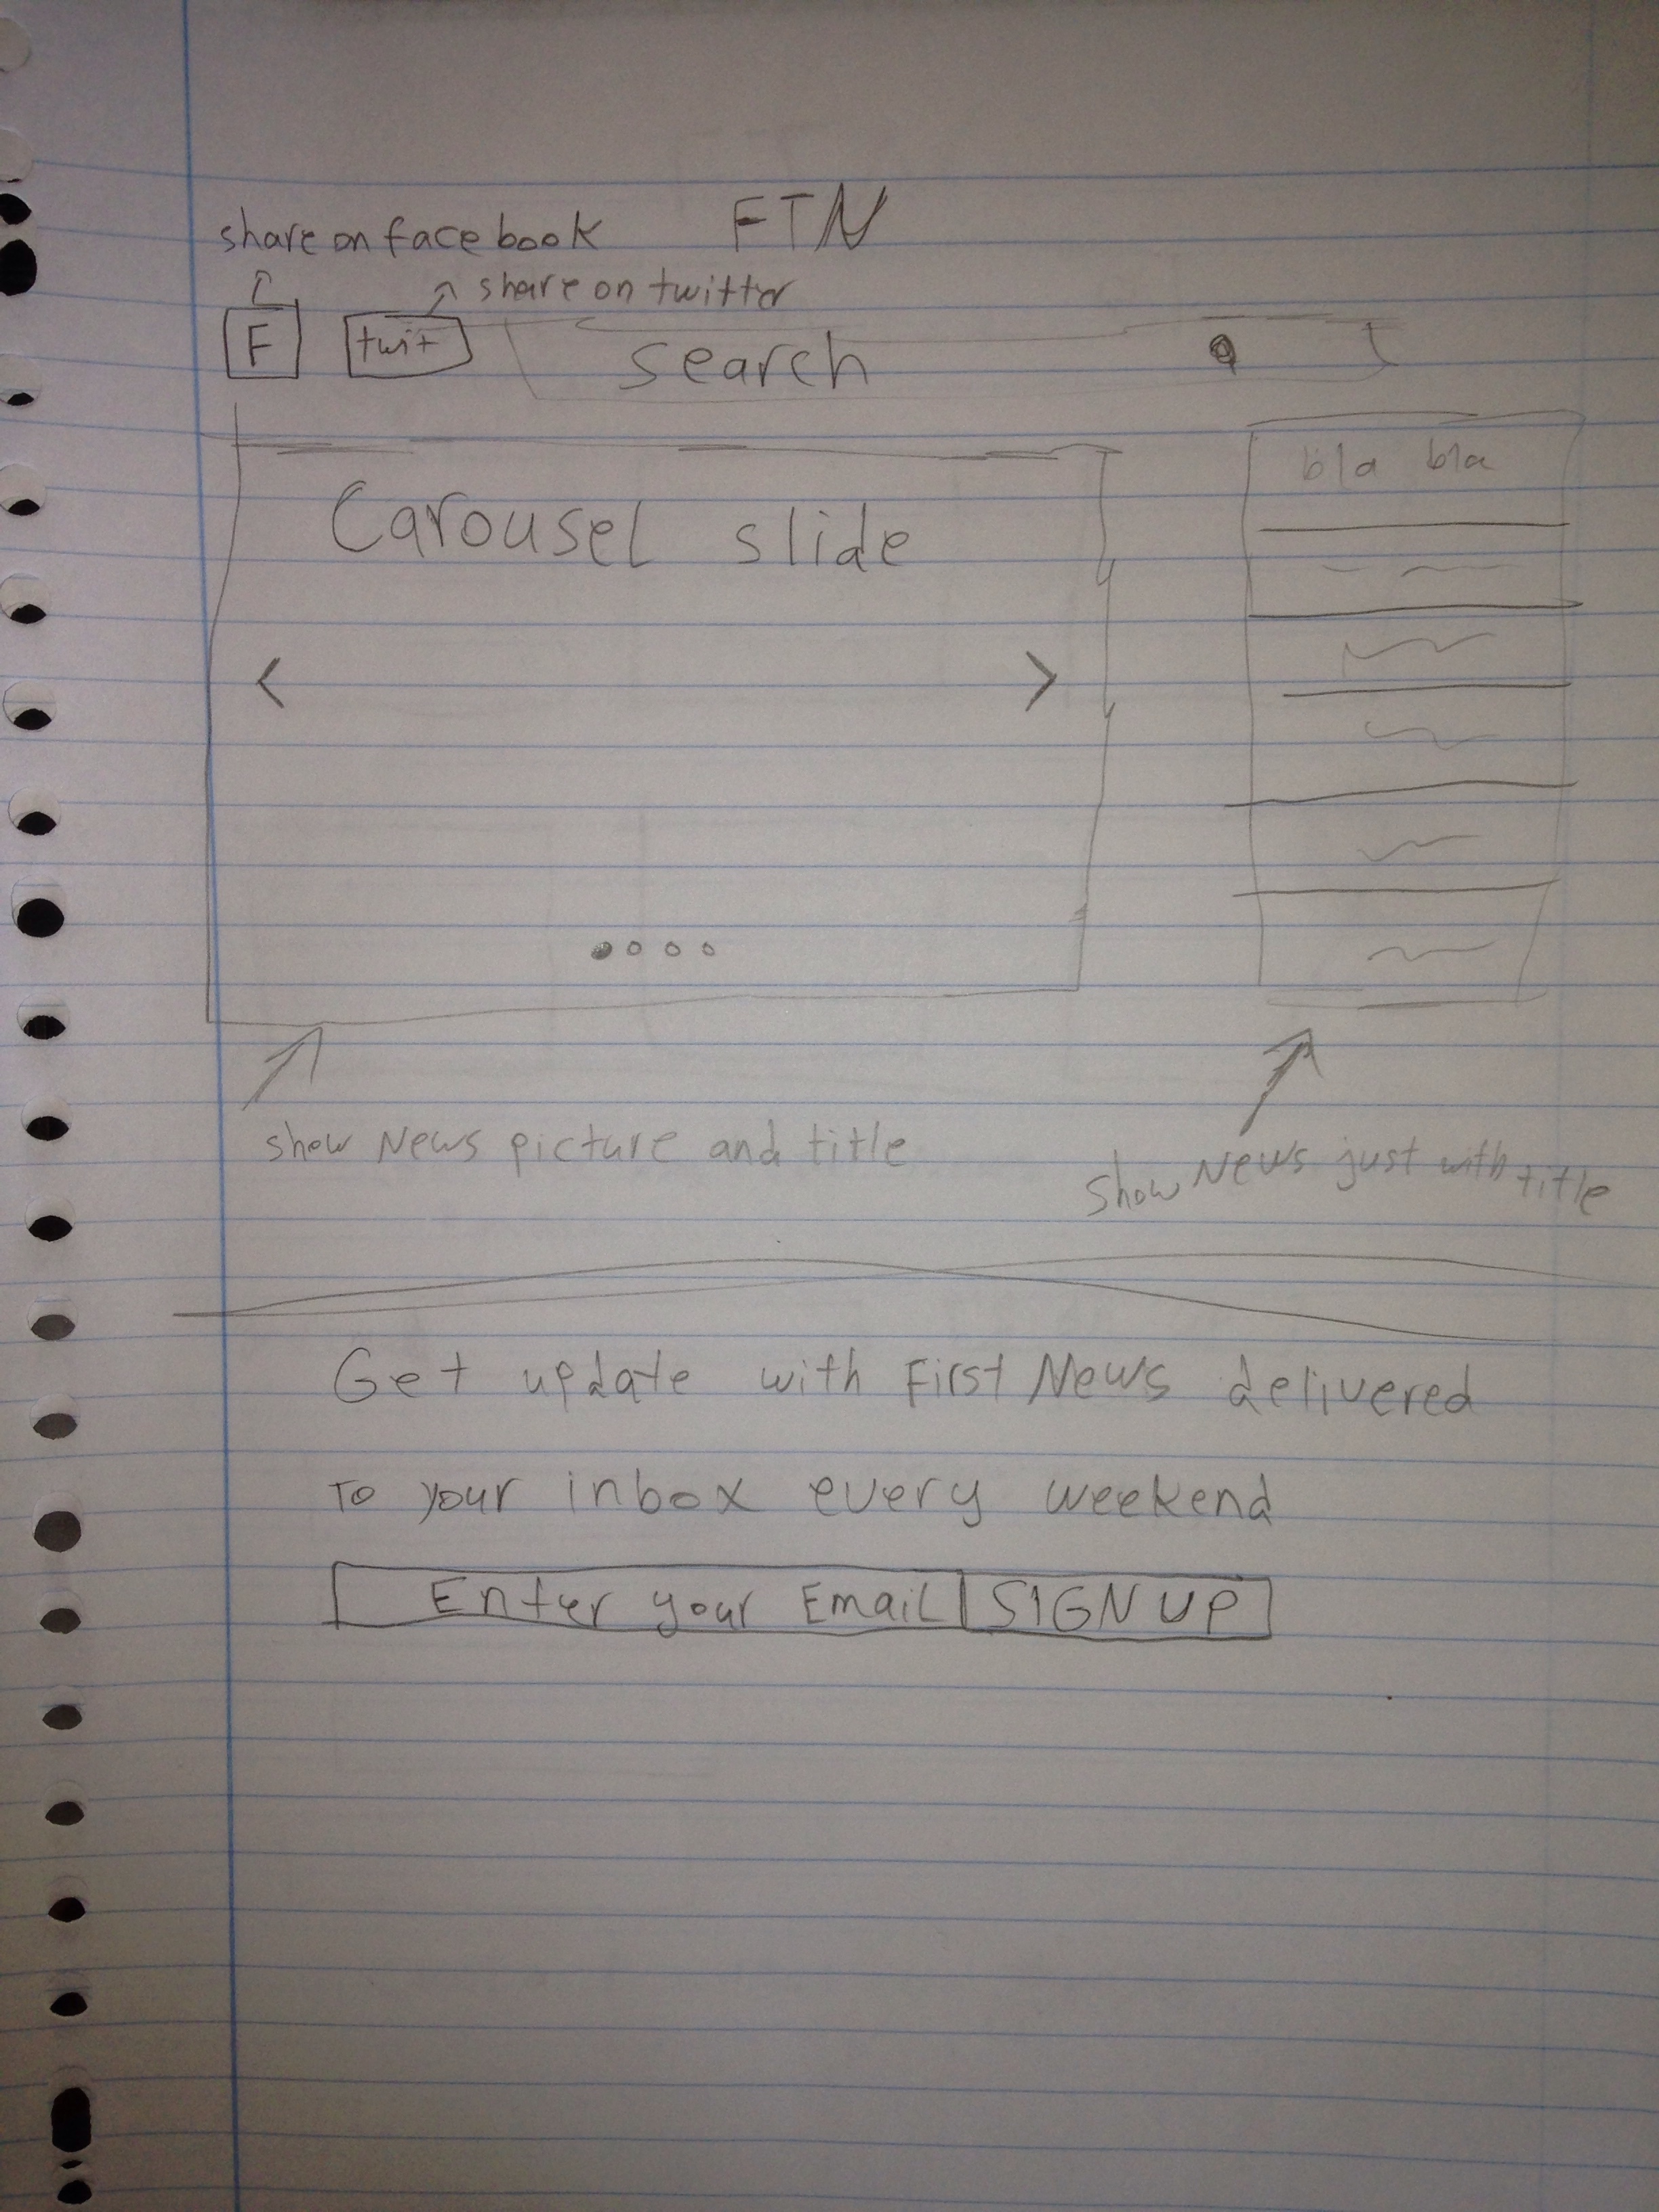 FTN
share on facebook
share on twitter
F
twit
search
bla bla
Carousel slide
<
>
show News picture and title
show News just with title
Get update with First News delivered
To your inbox every weekend
Enter your Email
SIGN UP